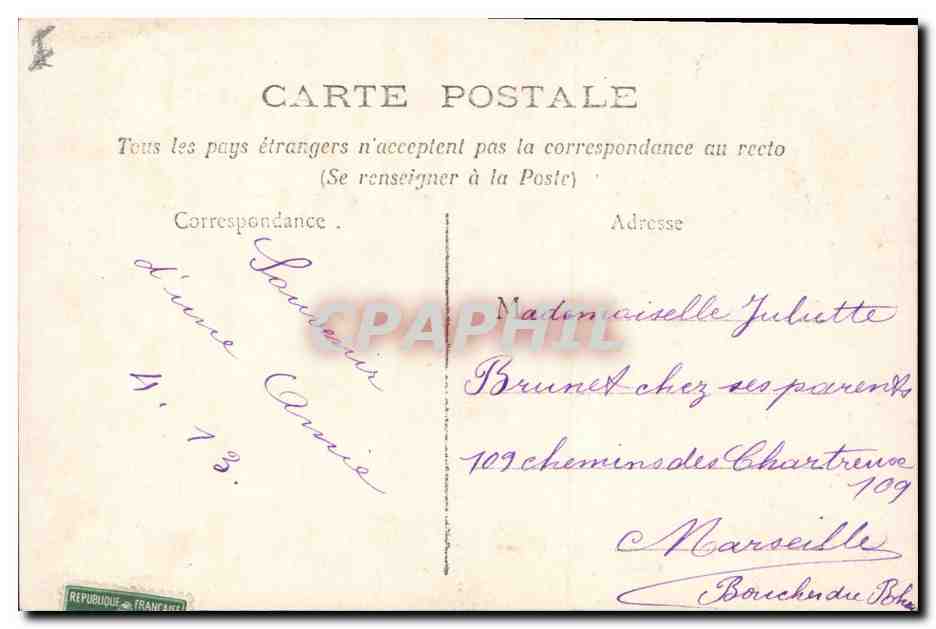 CARTE POSTALE
Tous les pays étrangers n'acceptent pas la correspondance au recto
(Se renseigner à la Poste)
Correspondance.
Souvenir
d'une Amie
13.
Adresse
Mademoiselle Juliette
Brunet chez ses parents
109 chemins des Chartreux
109
Marseille
Bouches du Rhône
CPAPHIL
REPUBLIQUE FRANÇAISE